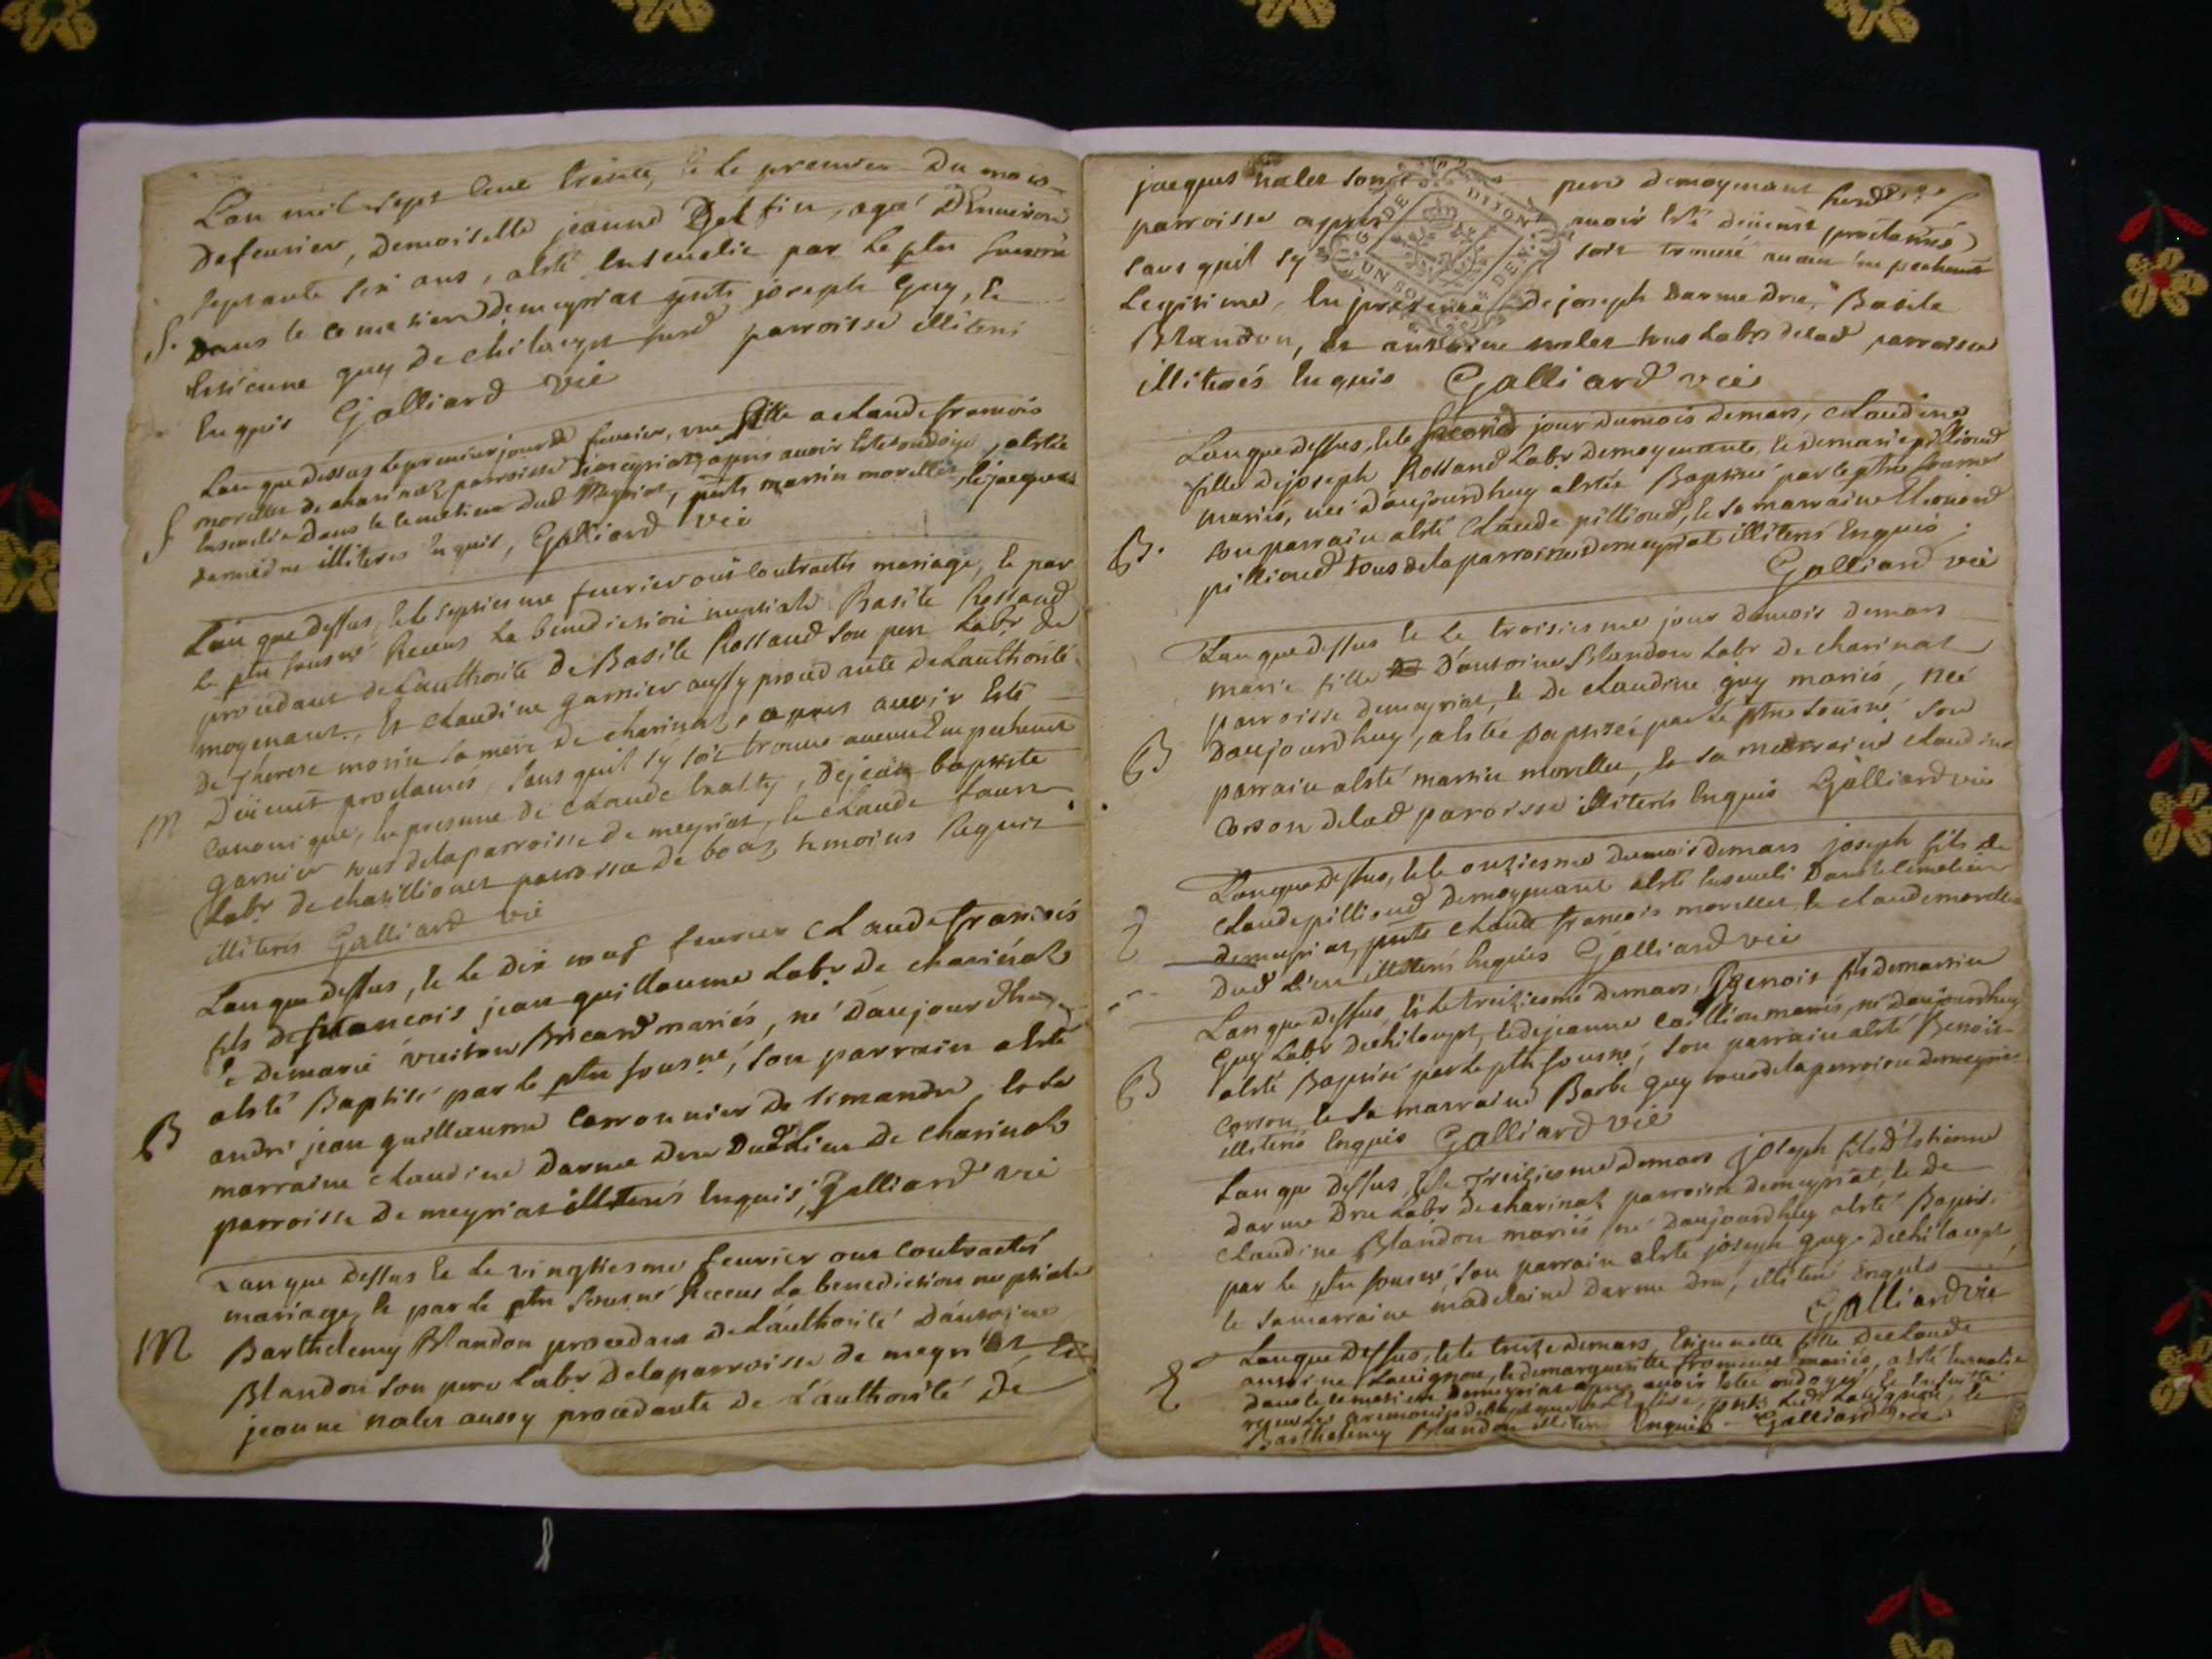 Lan mil sept cent trente, & le premier du mois
de feurier, demoiselle jeanne Delfin, agé denuiron
septante six ans, a esté enseuelie par le ptre sousné
S. dans le cemetiere de meyriat pnts joseph Guy, &
Estienne guy de chiloup susd parroisse illiterés
Enquis Galliard vic
Lan que dessus le premier jour de feurier, une fille a claude francois
morellet de charinaz parroisse de meyriat, apres auoir esté ondoyé, a estée
S enseuelie dans le cemetiere dud Meyriat, pnts martin morellet, & jacques
darmedru illiteres enquis, Galliard vic
Lan que dessus, & le septiesme feurier ont contractés mariage, & par
le ptre sousné Receus la benediction nuptiale Basile Rolland
procedant de Lauthorité de Basile Rolland son pere Labr de
moyenant. Et claudine garnier aussy procedante de Lauthorité
de Therese morin sa mere de charinaz, apres auoir esté
M Deüemt proclamés, sans quil sy soit trouué aucun Empechemt
Canonique, En presence de claude , de jean baptiste
garnier tous de la parroisse de meyriat, & claude
Labr de chatillionet parroisse de boaz temoins Requis
illiterés Galliard vic
Lan que dessus, & le dix neuf feurier claude francois
fils de francois jean guillaume Labr de charinaz
& de marie vuiton Bricard mariés, né daujourdhuy
a esté Baptisé par le ptre sousné, son parrain a esté
B andré jean guillaume Carronnier de simandre, & sa
marraine claudine darme dru dud Lieu de charinaz
parroisse de meyriat illiterés Enquis, Galliard vic
Lan que dessus & le vingtiesme feurier ont contractés
mariage, & par le ptre sousné Receus la benediction nuptiale
M Barthelemy Blandon procedant de Lauthorité dantoine
Blandon son pere Labr de la parroisse de meyriat, &
jeanne nalet aussy procedante de Lauthorité de
jacques nalet son pere de moyenant
parroisse apres auoir esté deüemt proclamés
sans quil sy soit trouué aucun empechemt
Legitime, En presence de joseph Darme Dru, Basile
Blandon, et antoine nalet tous Labrs de lad parroisse
illiterés Enquis Galliard vic
G. DE DIJON
UN SOL DEN.
Lan que dessus, & le second jour du mois de mars, claudine
fille de joseph Rolland Labr de moyenante, & de marie pilliond
mariés, née daujourdhuy a estée Baptisée par le ptre sousné
B. son parrain a esté claude pilliond, & sa marraine Leonard
pilliond tous de la parroisse de meyriat illiterés Enquis
Galliard vic
Lan que dessus & le troisiesme jour du mois de mars
marie fille dantoine Blandon Labr de charinaz
parroisse de meyriat, & de claudine guy mariés, née
B daujourdhuy, a estée baptisée par le ptre sousné son
parrain a esté martin morellet, & sa marraine claudine
Corson de lad parroisse illiterés Enquis Galliard vic
Lan que dessus, & le onziesme du mois de mars joseph fils de
claude pilliond de moyenant a esté enseueli dans le cemetiere
S de meyriat, pnts claude francois morellet, & claude morellet
dud Lieu illiterés Enquis Galliard vic
Lan que dessus, & le treiziesme de mars, Benoit fils de martin
Guy Labr de chiloup, & de jeanne caillion mariés, né daujourdhuy
B a esté Baptisé par le ptre sousné, son parrain a esté Benoit
Corson, & sa marraine Barbe guy tous de la parroisse de meyriat
illiterés Enquis Galliard vic
Lan que dessus, & le Treiziesme de mars joseph fils d'Estienne
darme dru Labr de charinaz parroisse de meyriat, & de
claudine Blandon mariés né daujourdhuy a esté Baptisé
par le ptre sousné, son parrain a esté joseph guy de chiloup
& sa marraine madelaine darme dru, illiterés Enquis
Galliard vic
Lan que dessus, & le treize de mars, fille de claude
antoine Lauignon, & de marguerite fromont mariés, a esté enseuelie
S dans le cemetiere de meyriat apres auoir estée ondoyée, & ensuitte
receu les ceremonies du bapteme a Leglise, pnts Led. Lauignon, &
Barthelemy Blandon illiterés Enquis Galliard vic